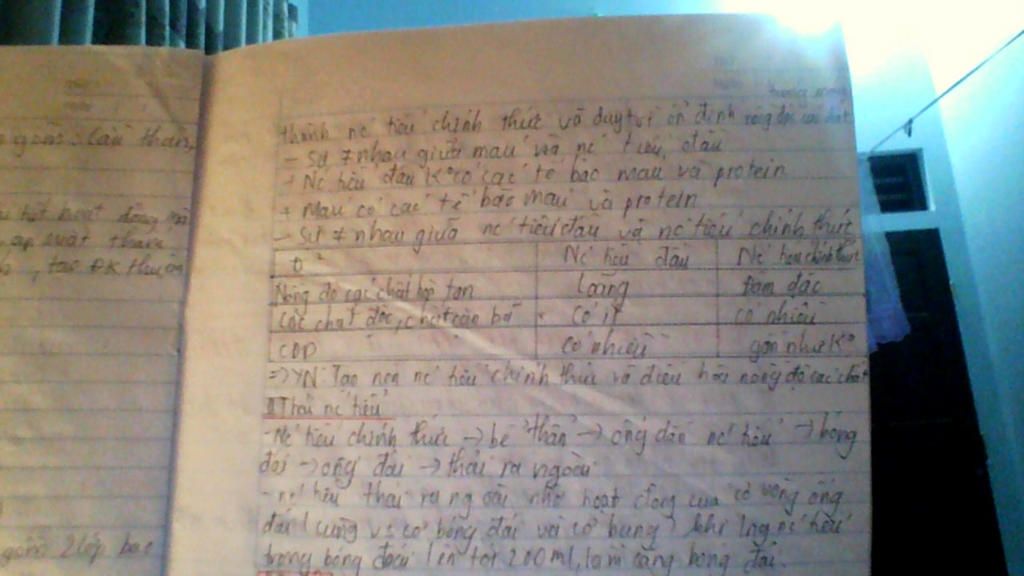 thành nc tiểu chính thức và duy trì ổn định nồng độ các chất
- Sự ≠ nhau giữa máu và nc tiểu đầu
+ Nc tiểu đầu K° có các tế bào máu và protein
+ Máu có các tế bào máu và protein
- Sự ≠ nhau giữa nc tiểu đầu và nc tiểu chính thức
Đ² Nc tiểu đầu Nc tiểu chính thức
Nồng độ các chất hòa tan Loãng Đậm đặc
Các chất độc, chất cặn bã Có ít Có nhiều
CDD Có nhiều gần như K°
=> YN Tạo nên nc tiểu chính thức và điều hòa nồng độ các chất
II Thải nc tiểu
- Nc tiểu chính thức → bể thận → ống dẫn nc tiểu → bóng
đái → ống đái → thải ra ngoài
- nc tiểu thải ra ngoài nhờ hoạt động của cơ vòng ống
đái (cùng vs cơ bóng đái và cơ bụng) khi lng nc tiểu
trong bóng đái lên tới 200 ml, làm căng bóng đái.
cẩn thận,
hoạt động
áp suất thẩm
, tạo ĐK thuận
gồm 2 lớp